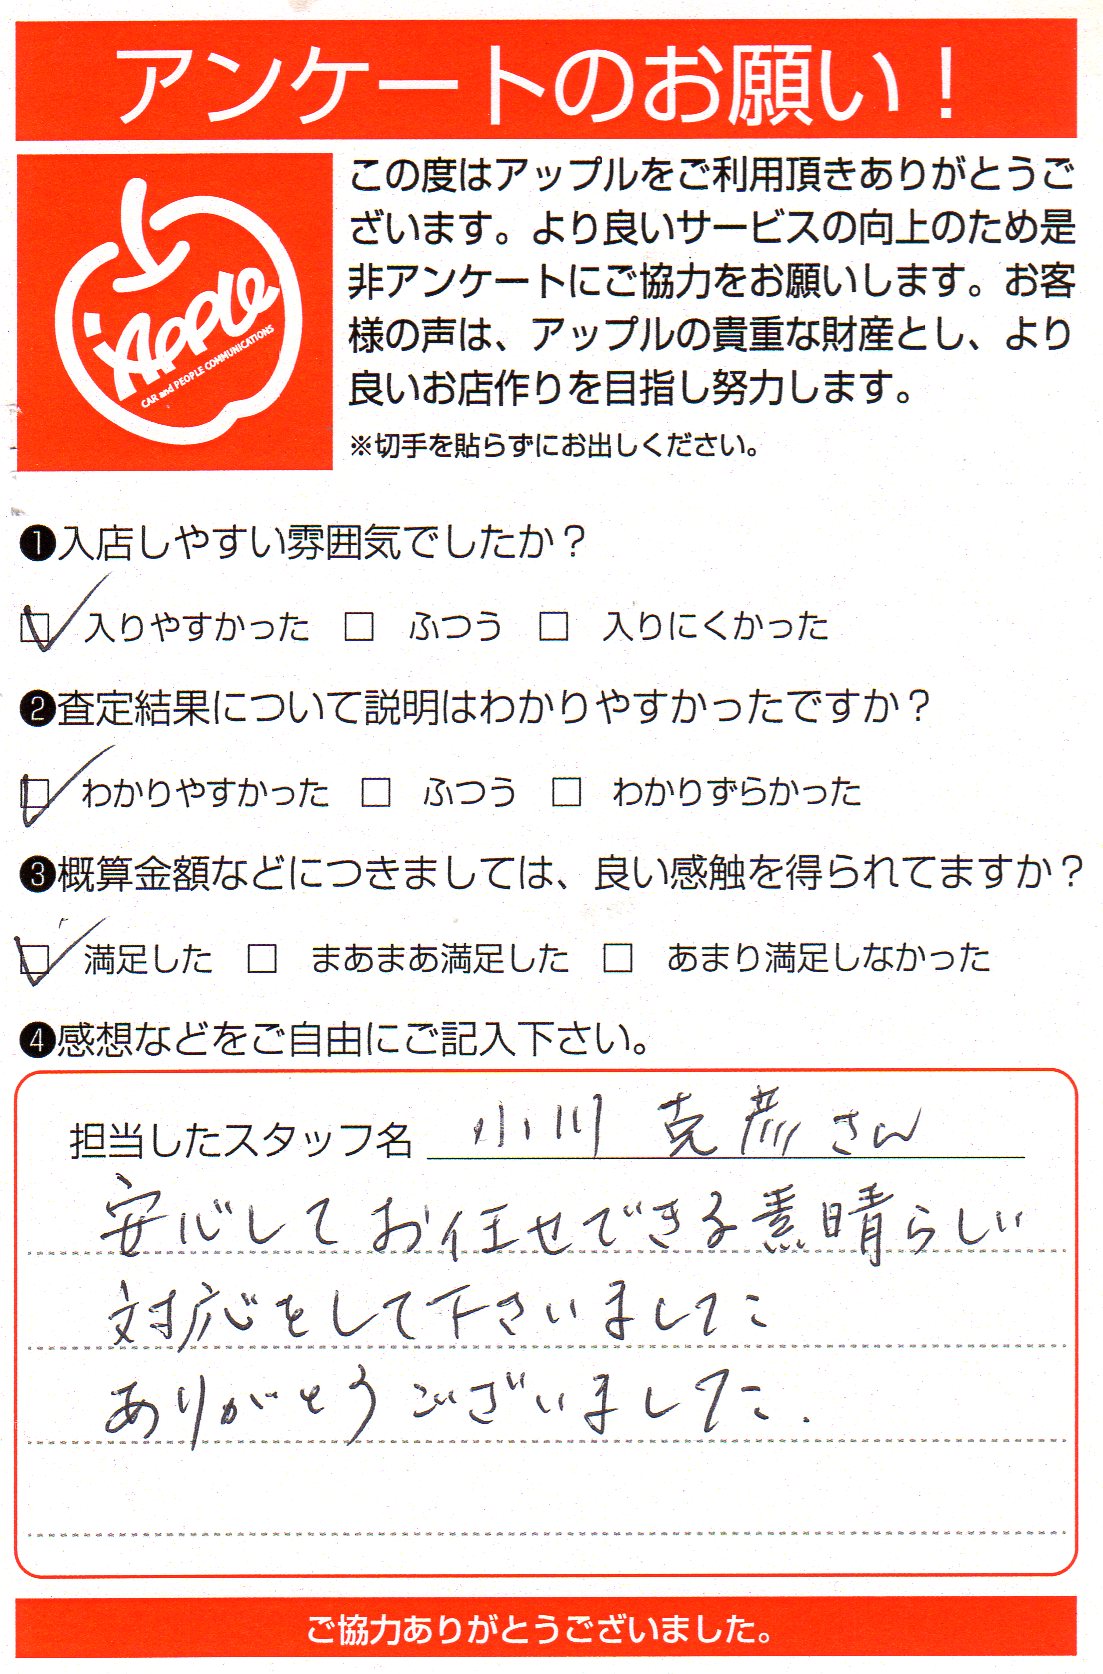 アンケートのお願い！
Apple
CAR and PEOPLE COMMUNICATIONS
この度はアップルをご利用頂きありがとうご
ざいます。より良いサービスの向上のため是
非アンケートにご協力をお願いします。お客
様の声は、アップルの貴重な財産とし、より
良いお店作りを目指し努力します。
※切手を貼らずにお出しください。
❶入店しやすい雰囲気でしたか？
☑ 入りやすかった □ ふつう □ 入りにくかった
❷査定結果について説明はわかりやすかったですか？
☑ わかりやすかった □ ふつう □ わかりずらかった
❸概算金額などにつきましては、良い感触を得られてますか？
☑ 満足した □ まあまあ満足した □ あまり満足しなかった
❹感想などをご自由にご記入下さい。
担当したスタッフ名 小川 克彦さん
安心してお任せできる素晴らしい
対応をして下さいました
ありがとうございました.
ご協力ありがとうございました。